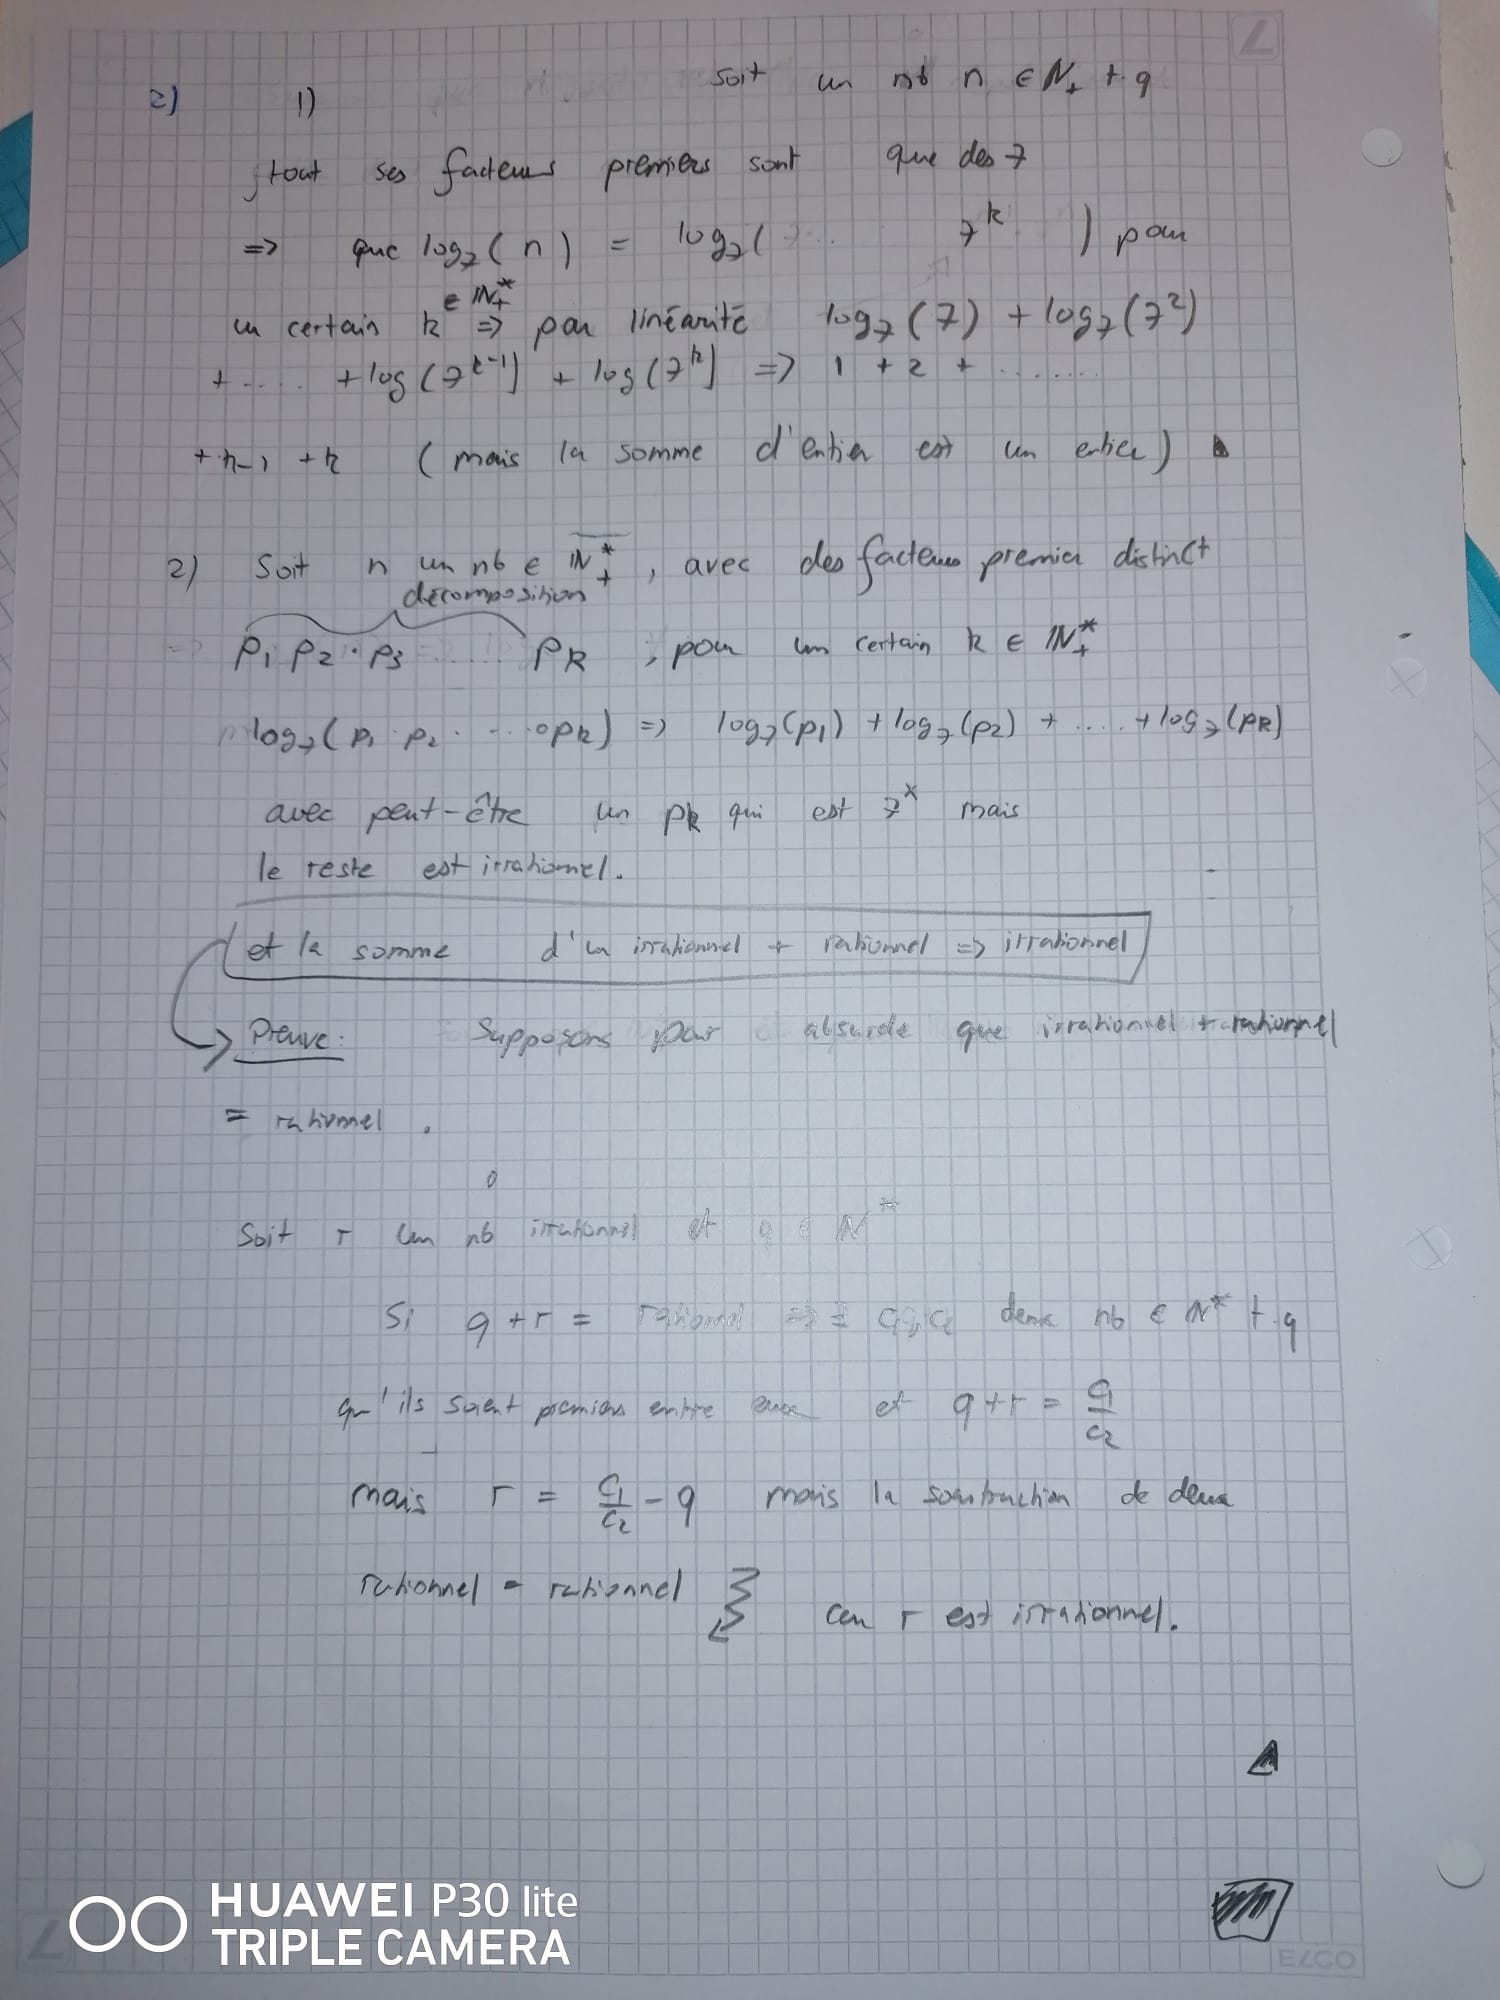 soit un nb n ∈ N₊ t.q
2) 1)
tout ses facteurs premiers sont que des 7
=> que log₇(n) = log₇( 7^k ) pour
∈ N₊*
un certain k => par linéarité log₇(7) + log₇(7²)
+ ..... + log(7^(k-1)) + log(7^k) => 1 + 2 + ........
+ k-1 + k (mais la somme d'entier est un entier)
2) Soit n un nb ∈ N₊*, avec des facteurs premier distinct
décomposition
P₁ P₂ · P₃ ..... Pk , pour un certain k ∈ N₊*
log₇(p₁ · p₂ · ... · pk) => log₇(p₁) + log₇(p₂) + ..... + log₇(pk)
avec peut-être un pk qui est 7^x mais
le reste est irrationnel.
et la somme d'un irrationnel + rationnel => irrationnel
Preuve: Supposons par absurde que irrationnel + rationnel
= rationnel .
Soit r un nb irrationnel et q ∈ N*
Si q + r = rationnel => ∃ c₁, c₂ deux nb ∈ N* t.q
qu'ils soient premiers entre eux et q + r = c₁/c₂
mais r = c₁/c₂ - q mais la soustraction de deux
rationnel = rationnel car r est irrationnel.
HUAWEI P30 lite
TRIPLE CAMERA
ELCO